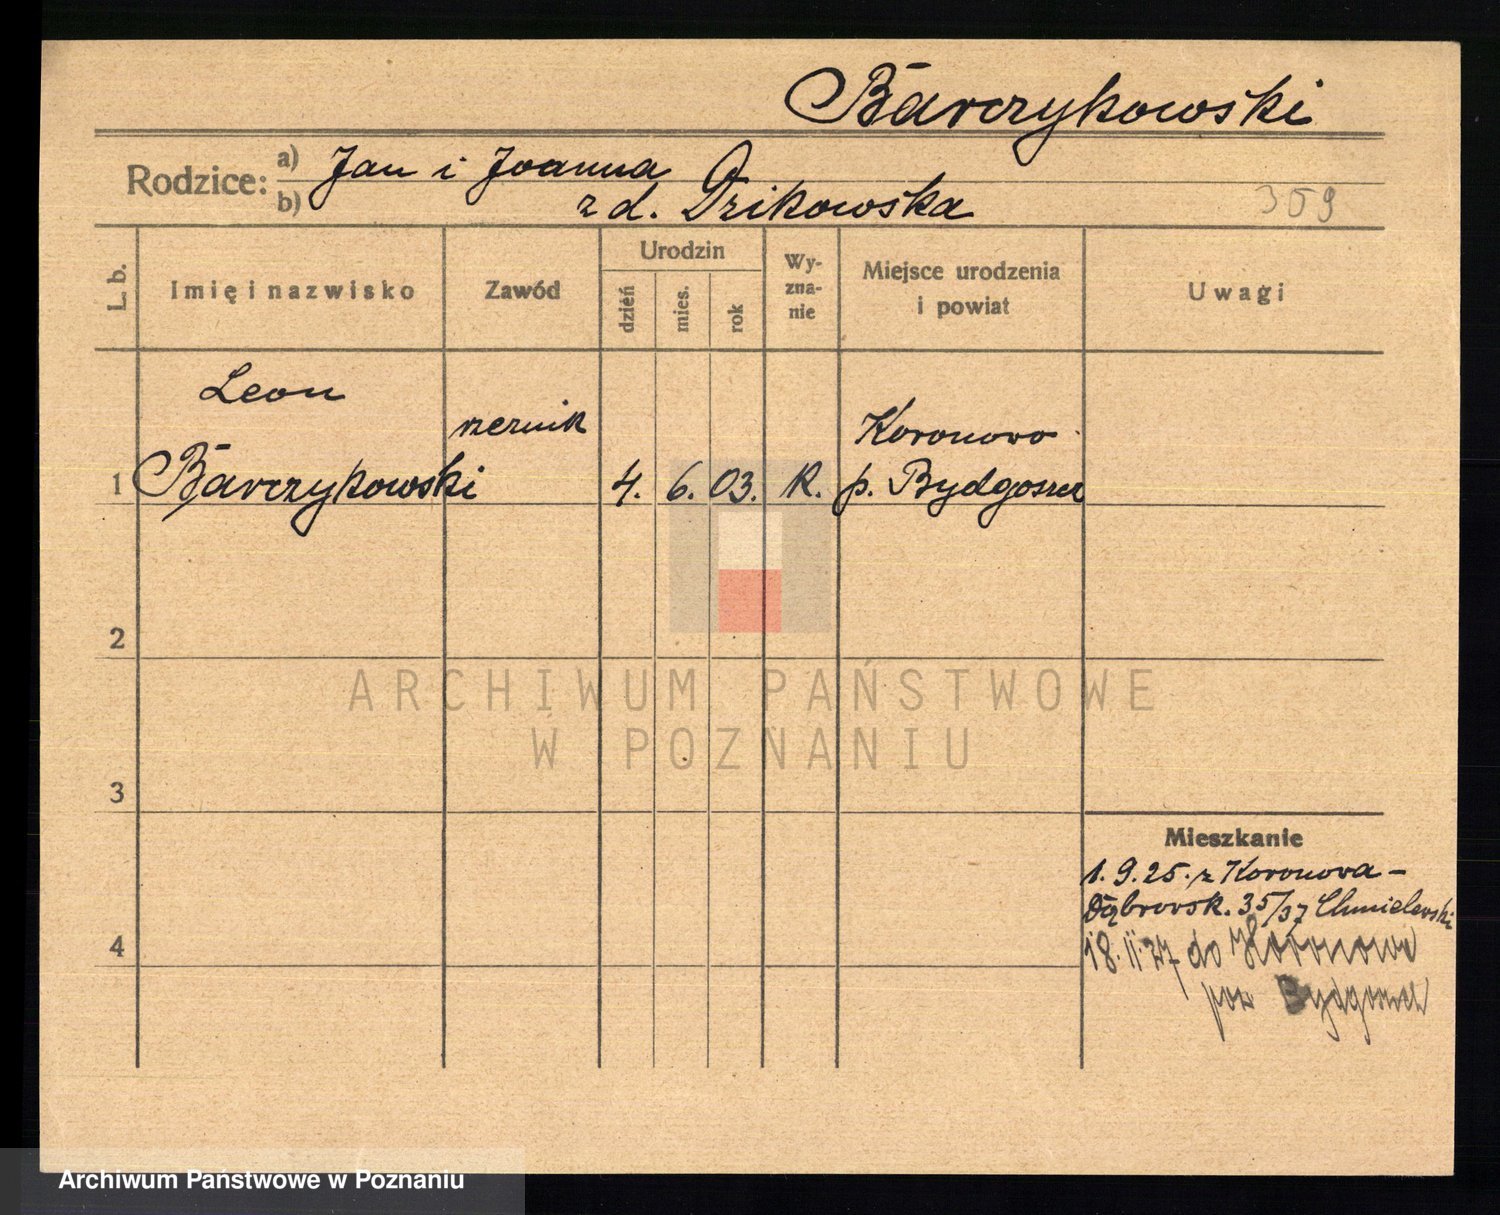 Barczykowski
Rodzice: a) Jan i Joanna
b) z d. Dzikowska
309
L. b.
Imię i nazwisko
Zawód
Urodzin
dzień
mies.
rok
Wy-
zna-
nie
Miejsce urodzenia
i powiat
Uwagi
Leon
rzeźnik
Koronowo
1 Barczykowski 4. 6. 03. R. p. Bydgoszcz
2
ARCHIWUM PAŃSTWOWE
W POZNANIU
3
Mieszkanie
1. 9. 25. z Koronowa –
Dąbrowsk. 35/37 Chmielewski
4
18. 11. 27 do Koronowo
pow Bydgoszcz
Archiwum Państwowe w Poznaniu